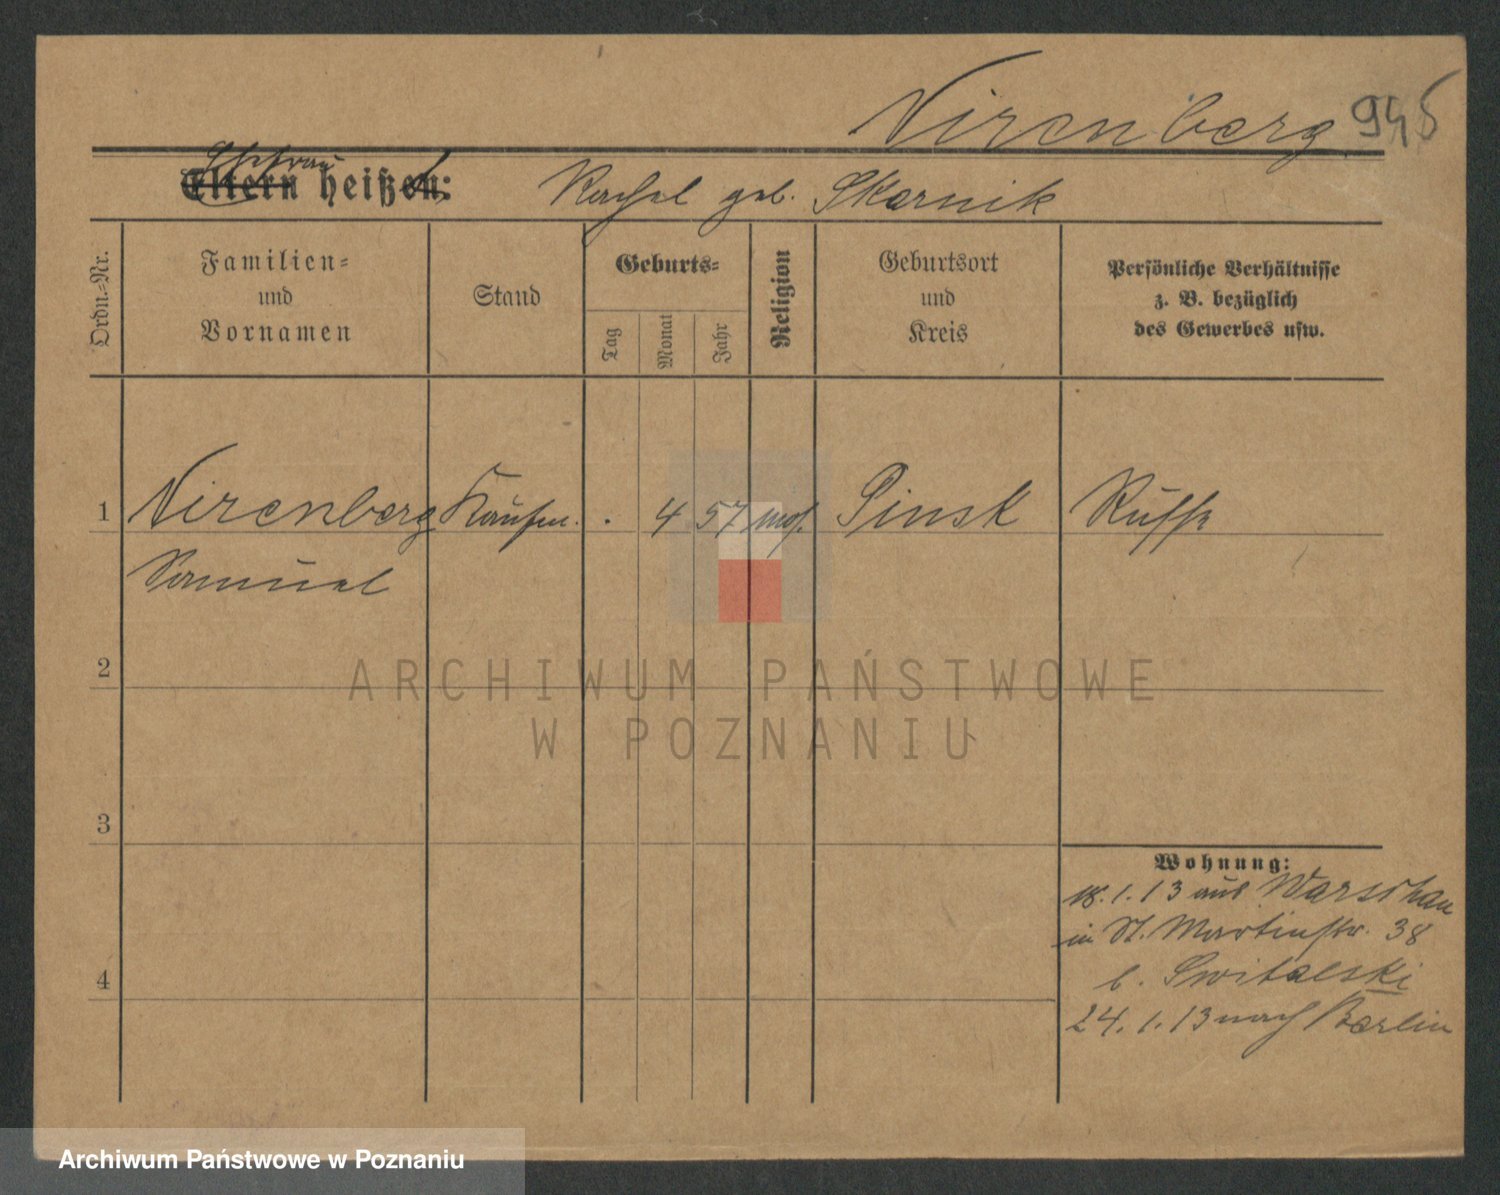 Nirenberg 945
Ehefrau
Eltern heißen: Rachel geb. Skornik
Ordn.-Nr.
Familien-
und
Vornamen
Stand
Geburts-
Tag
Monat
Jahr
Religion
Geburtsort
und
Kreis
Persönliche Verhältnisse
z. B. bezüglich
des Gewerbes usw.
1 Nirenberg Kaufm. . 4 57 mos. Pinsk Russe
Samuel
2
3
4
Wohnung:
18.1.13 aus Warschau
in St. Martinstr. 38
b. Switalski
24.1.13 nach Berlin
ARCHIWUM PAŃSTWOWE
W POZNANIU
Archiwum Państwowe w Poznaniu